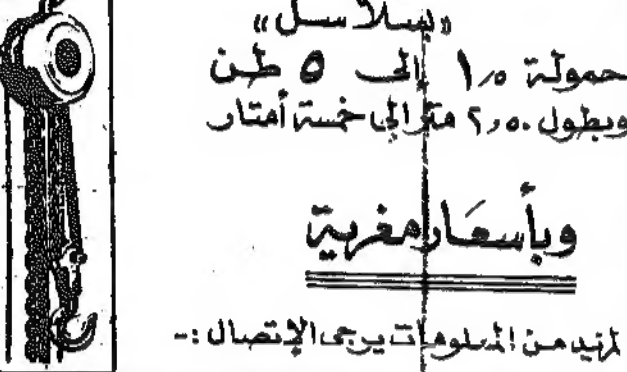 «بسلاسل»
حمولة ١٫٥ إلى ٥ طن
وبطول ٢٫٥٠ متر إلى خمسة أمتار
وبأسعار مغرية
لمزيد من المعلومات يرجى الإتصال :-